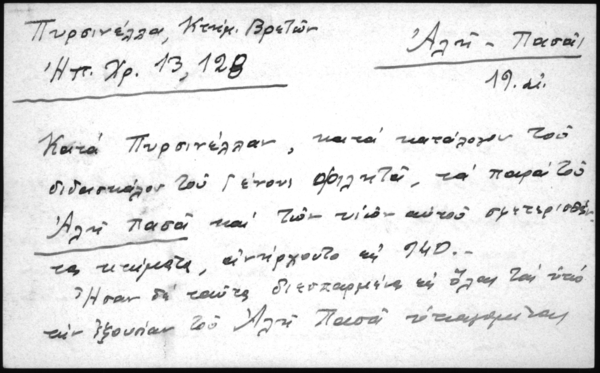 Πυρσινέλλα, Κτημ. Βρετῶν
Ἠπ. Χρ. 13, 128
Ἀλῆ - Πασᾶ
19. αἰ.
Κατά Πυρσινέλλαν, κατά κατάλογον τοῦ
διδασκάλου τοῦ Γένους Φιλητᾶ, τά παρά τοῦ
Ἀλῆ Πασᾶ καί τῶν υἱῶν αὐτοῦ σφετερισθέν-
τα κτήματα, ἀνήρχοντο εἰς 940.-
Ἦσαν δέ ταῦτα διεσπαρμένα εἰς ὅλας τάς ὑπό
τήν ἐξουσίαν τοῦ Ἀλῆ Πασᾶ ὑπαγομένας